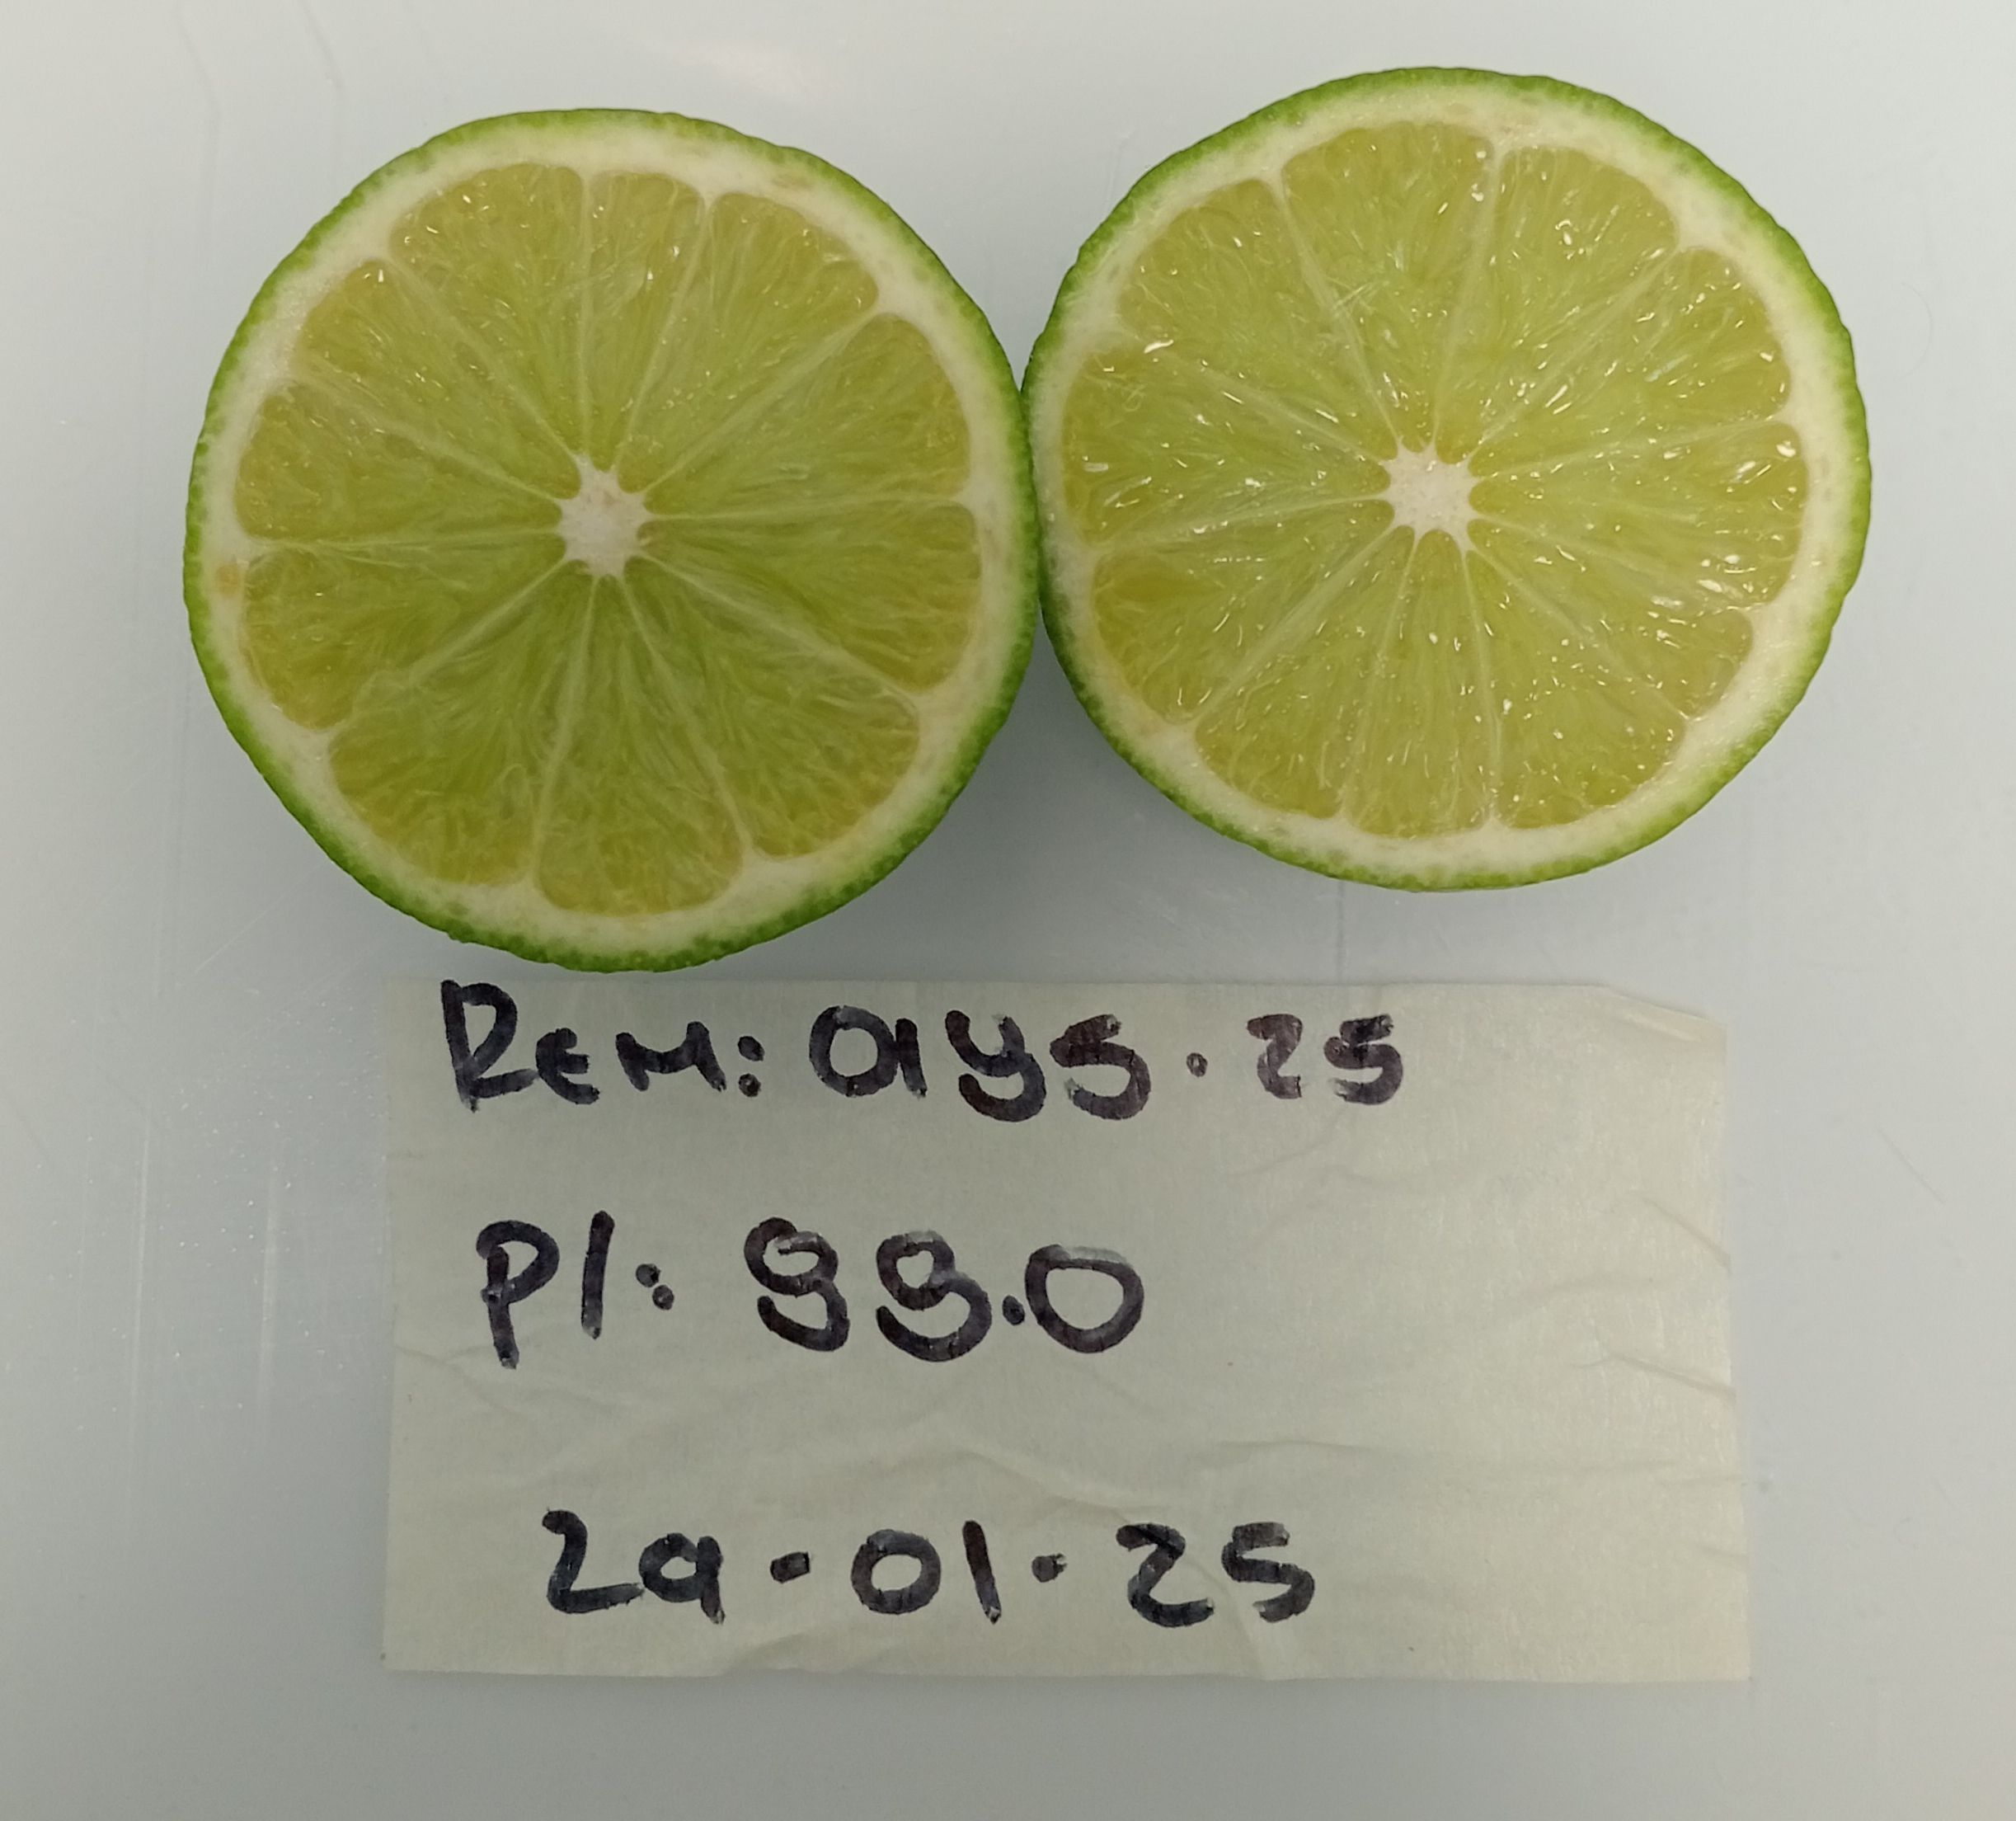 REM: 0195.25
P/: 99.0
29.01.25